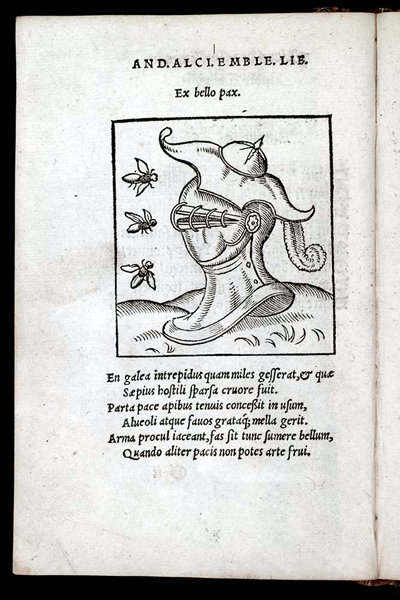 AND. ALCI. EMBLE. LIB.
Ex bello pax.
En galea intrepidus quam miles gesserat, & quæ
Sæpius hostili sparsa cruore fuit.
Parta pace apibus tenuis concessit in usum,
Alueoli atque fauos grataq; mella gerit.
Arma procul iaceant, fas sit tunc sumere bellum,
Quando aliter pacis non potes arte frui.